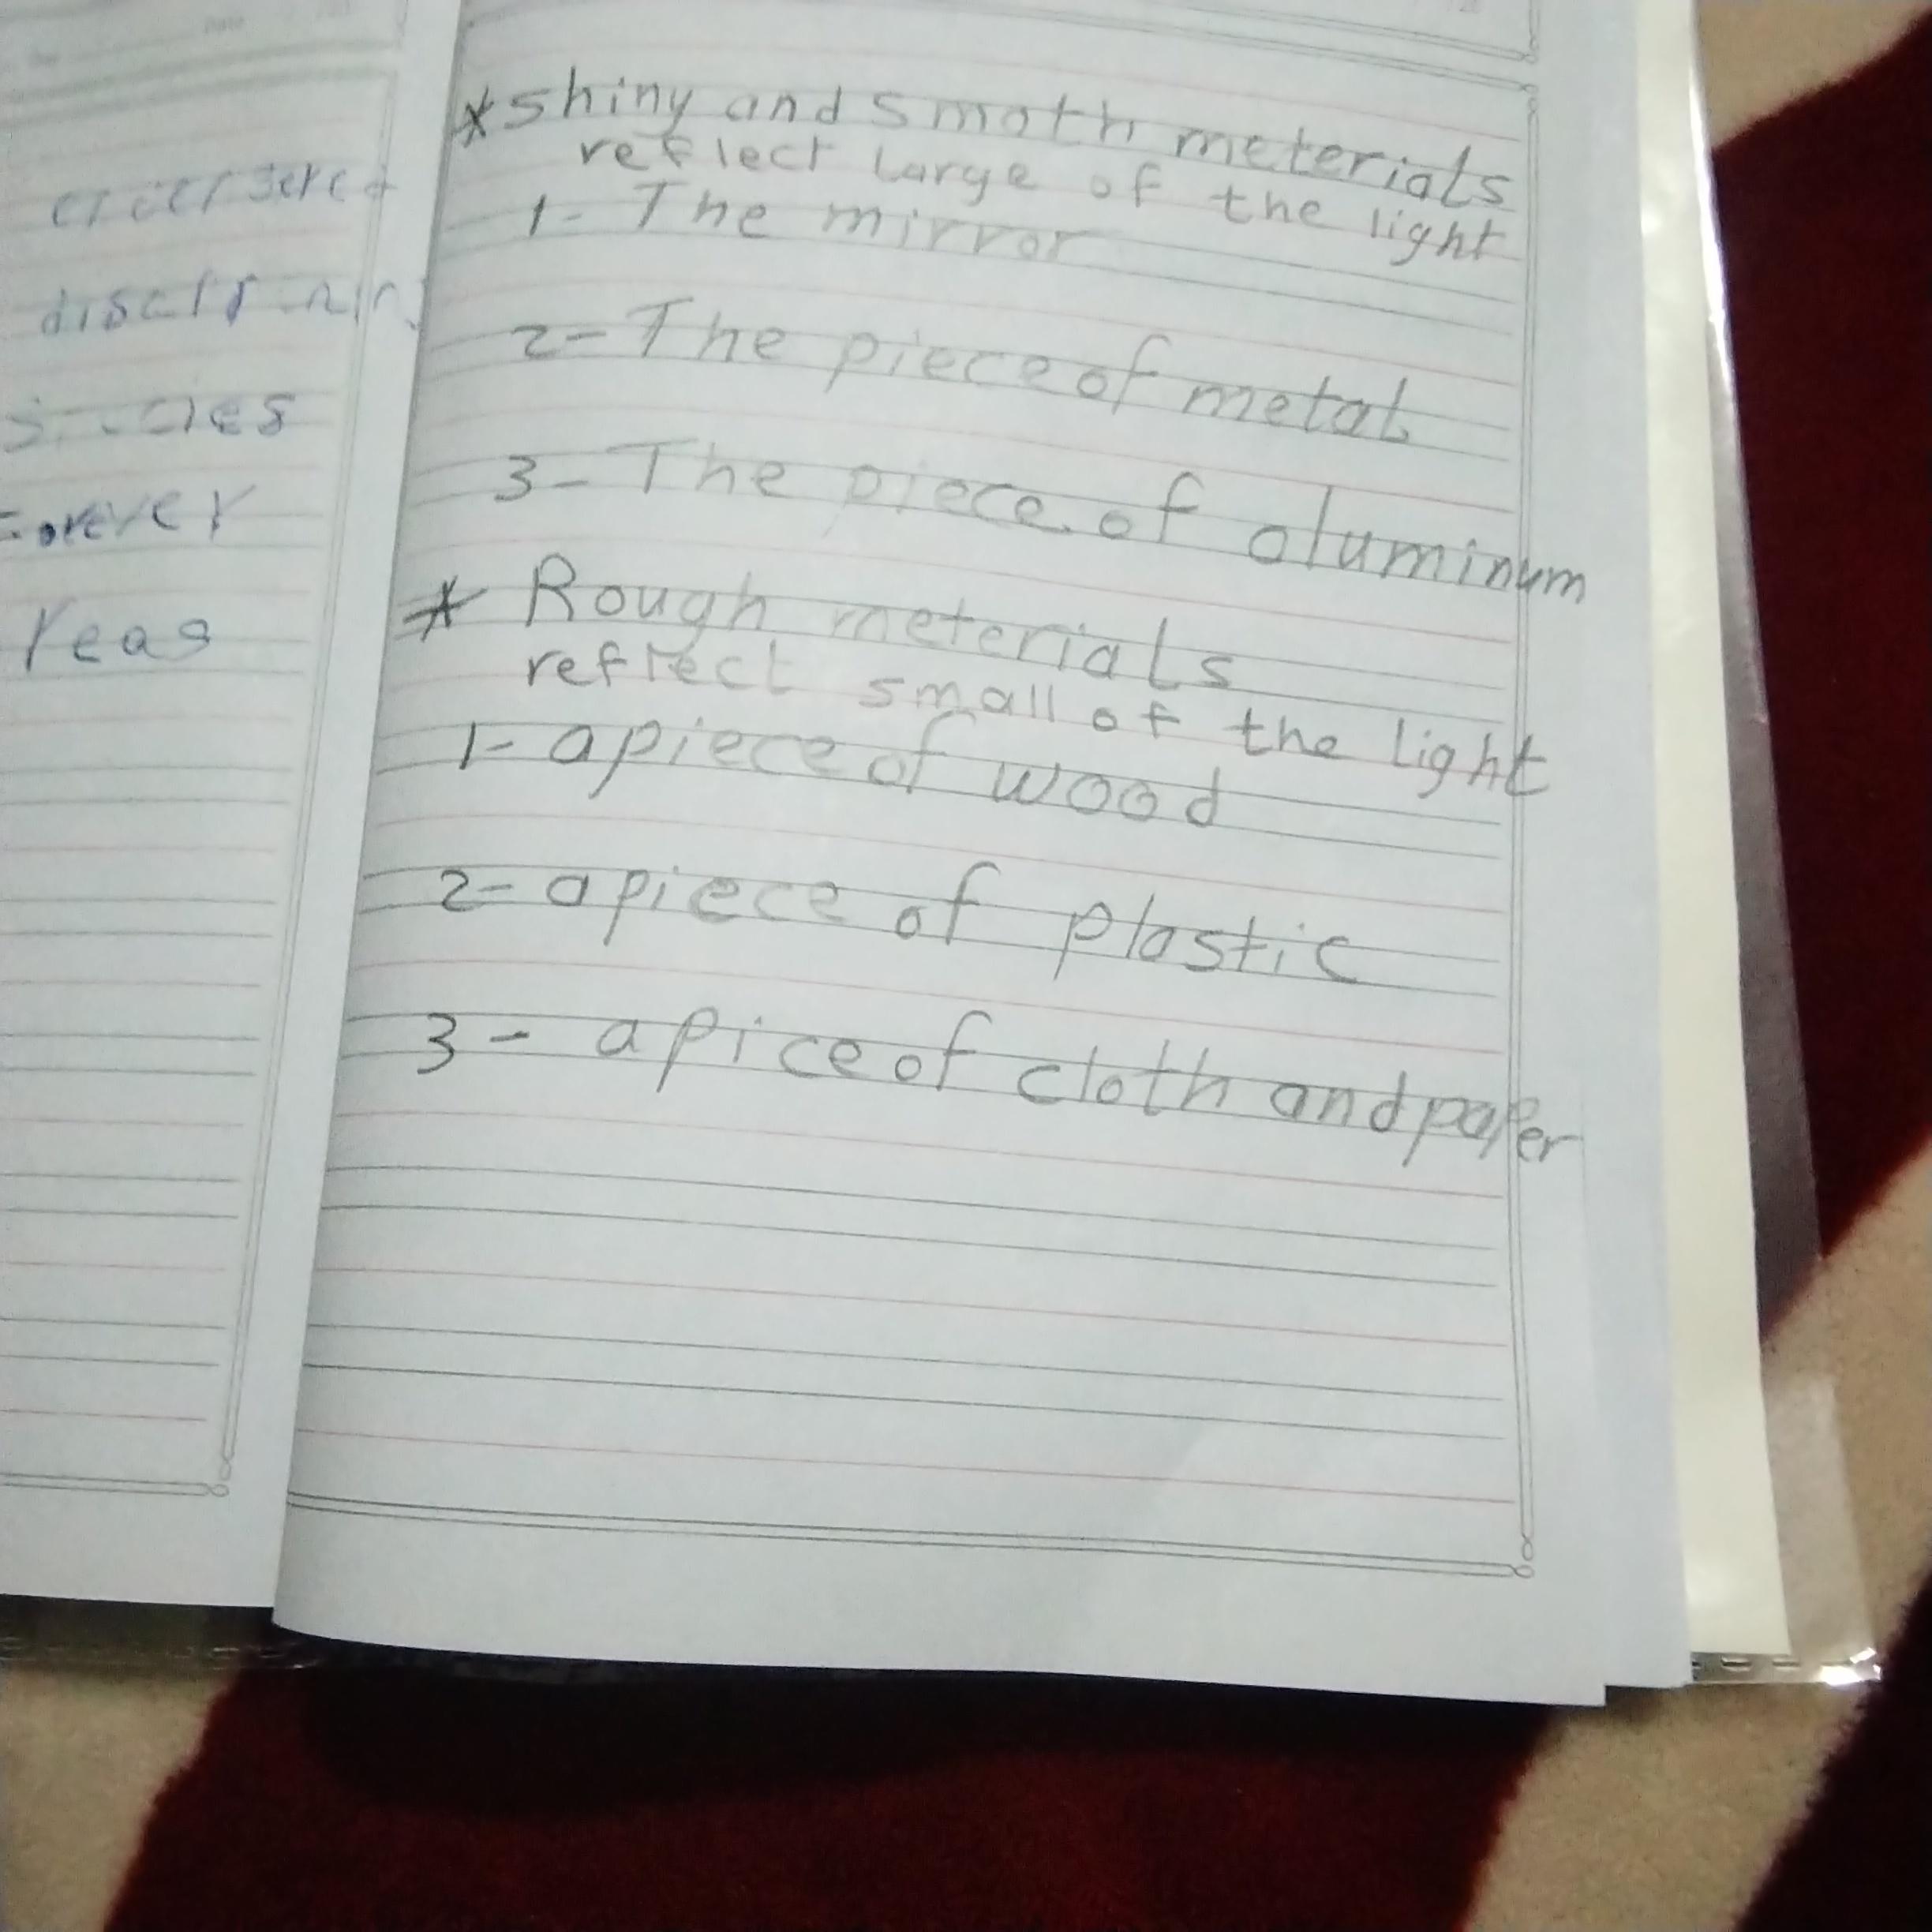 Date
forever
Yeas
*shiny and smoth meterials
reflect large of the light
1- The mirror
2- The piece of metal
3- The piece of aluminum
* Rough meterials
reflect small of the light
1- a piece of wood
2- a piece of plastic
3- a pice of cloth and paper